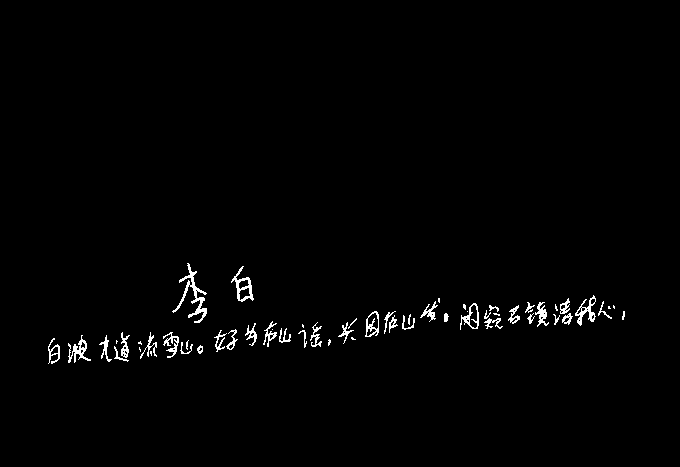 李白
白波九道流雪山。好为庐山谣，兴因庐山发。闲窥石镜清我心，